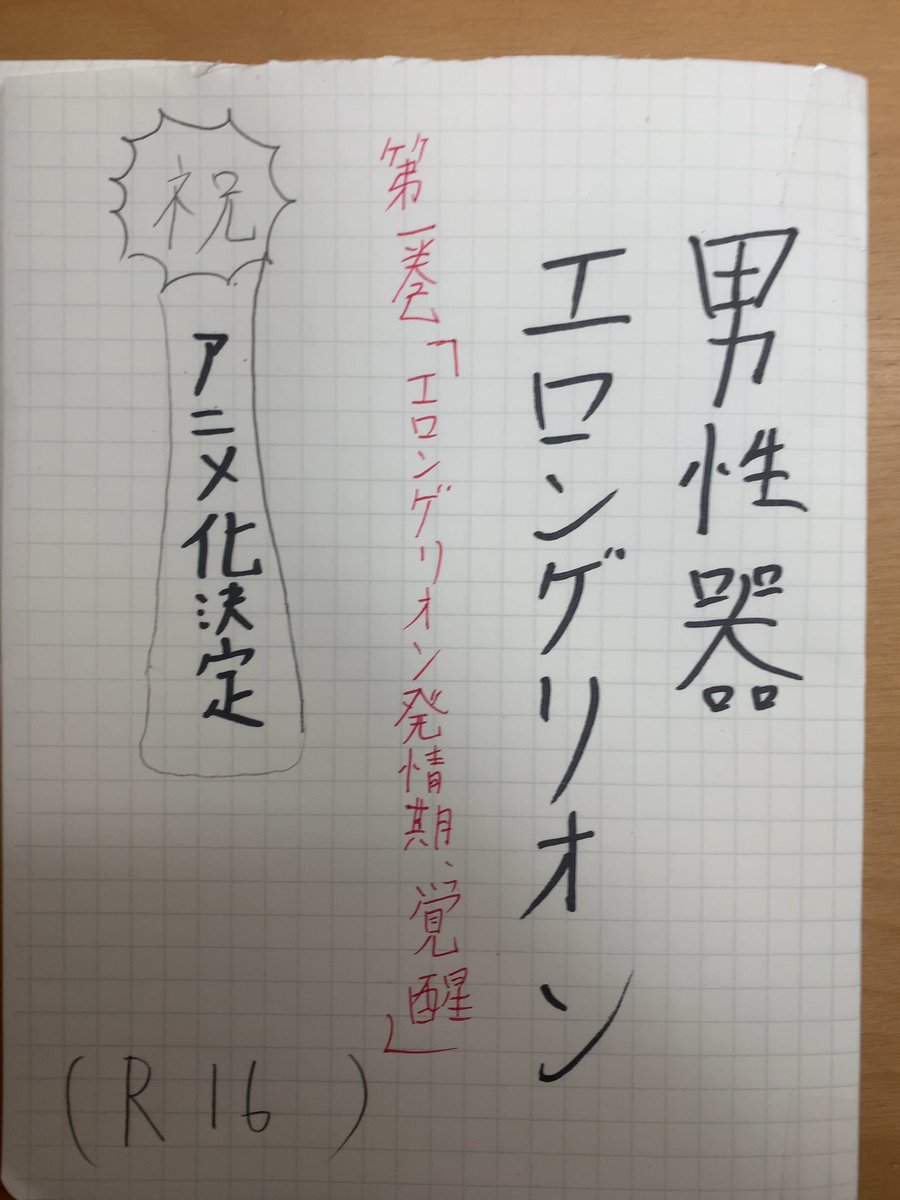 男性器
エロンゲリオン
第一巻「エロンゲリオン発情期、覚醒」
祝
アニメ化決定
(R16)